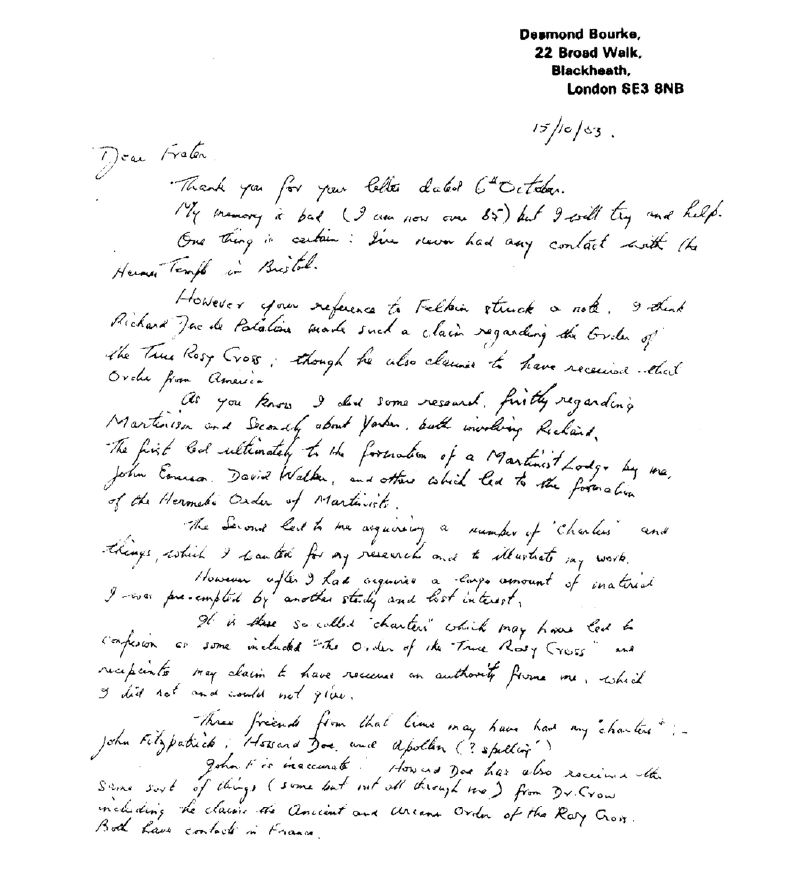 Desmond Bourke,
22 Broad Walk,
Blackheath,
London SE3 8NB
15/10/03.
Dear Frater
Thank you for your letter dated 6th October.
My memory is bad (I am now over 85) but I will try and help.
One thing is certain: I've never had any contact with the
Hermes Temple in Bristol.
However your reference to Felkin struck a note. I think
Richard Duc de Palatine made such a claim regarding the Order of
the True Rosy Cross; though he also claimed to have received that
Order from America
As you know I did some research, firstly regarding
Martinism and Secondly about Yarker, both involving Richard.
The first led ultimately to the formation of a Martinist Lodge by me,
John Emerson, David Walker, and others which led to the formation
of the Hermetic Order of Martinists.
The Second led to me acquiring a number of "Charters" and
things, which I wanted for my research and to illustrate my work.
However after I had acquired a large amount of material
I was pre-empted by another study and lost interest.
It is these so called "charters" which may have led to
confusion as some included "the Order of the True Rosy Cross" and
recipients may claim to have received an authority from me, which
I did not and could not give.
Three friends from that time may have had my "charters" :-
John Fitzpatrick; Howard Doe, and Apollon (? spelling")
John F is inaccurate. Howard Doe has also received the
same sort of things (some but not all through me) from Dr. Crow
including he claims the Ancient and Arcane Order of the Rosy Cross.
Both have contacts in France.